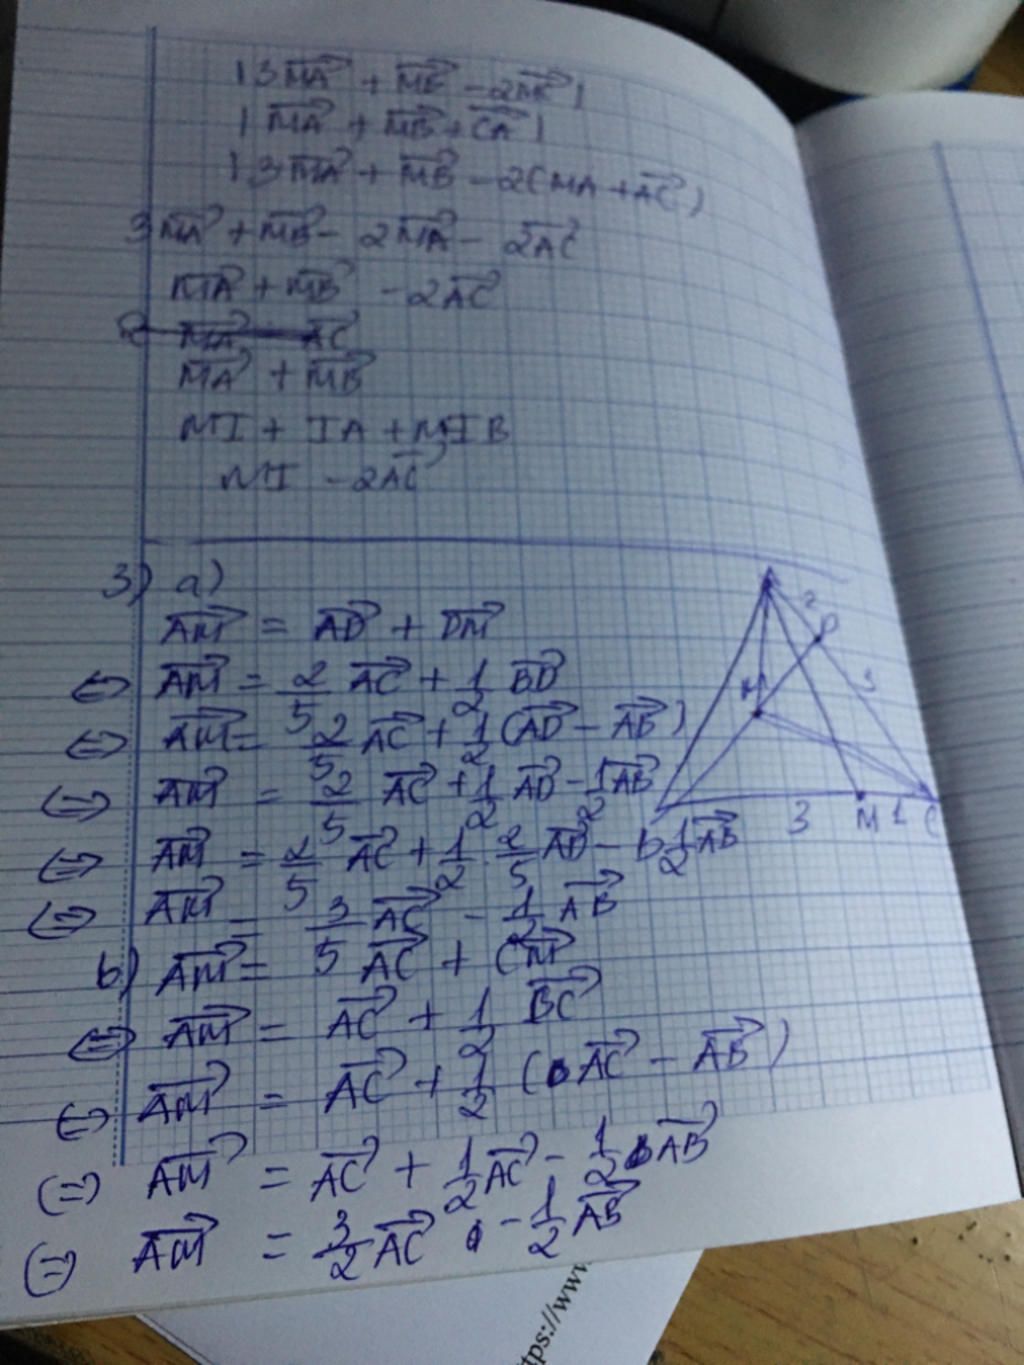 |3MA⃗ + MB⃗ - 2MC⃗|
|MA⃗ + MB⃗ + CA⃗|
|3MA⃗ + MB⃗ - 2(MA + AC⃗)
3MA⃗ + MB⃗ - 2MA⃗ - 2AC⃗
MA⃗ + MB⃗ - 2AC⃗
MA⃗ + MB⃗
MI + IA + MIB
MI - 2AC⃗
3) a)
AM⃗ = AD⃗ + DM⃗
⇔ AM⃗ = 2/5 AC⃗ + 1/2 BD⃗
⇔ AM⃗ = 2/5 AC⃗ + 1/2 (AD⃗ - AB⃗)
⇔ AM⃗ = 2/5 AC⃗ + 1/2 AD⃗ - 1/2 AB⃗
⇔ AM⃗ = 2/5 AC⃗ + 1/2 . 2/5 AD⃗ - 1/2 AB⃗
⇔ AM⃗ = 3/5 AC⃗ - 1/2 AB⃗
b) AM⃗ = AC⃗ + CM⃗
⇔ AM⃗ = AC⃗ + 1/2 BC⃗
⇔ AM⃗ = AC⃗ + 1/2 (AC⃗ - AB⃗)
⇔ AM⃗ = AC⃗ + 1/2 AC⃗ - 1/2 AB⃗
⇔ AM⃗ = 3/2 AC⃗ - 1/2 AB⃗
2
D
3
M
3
M
1
C